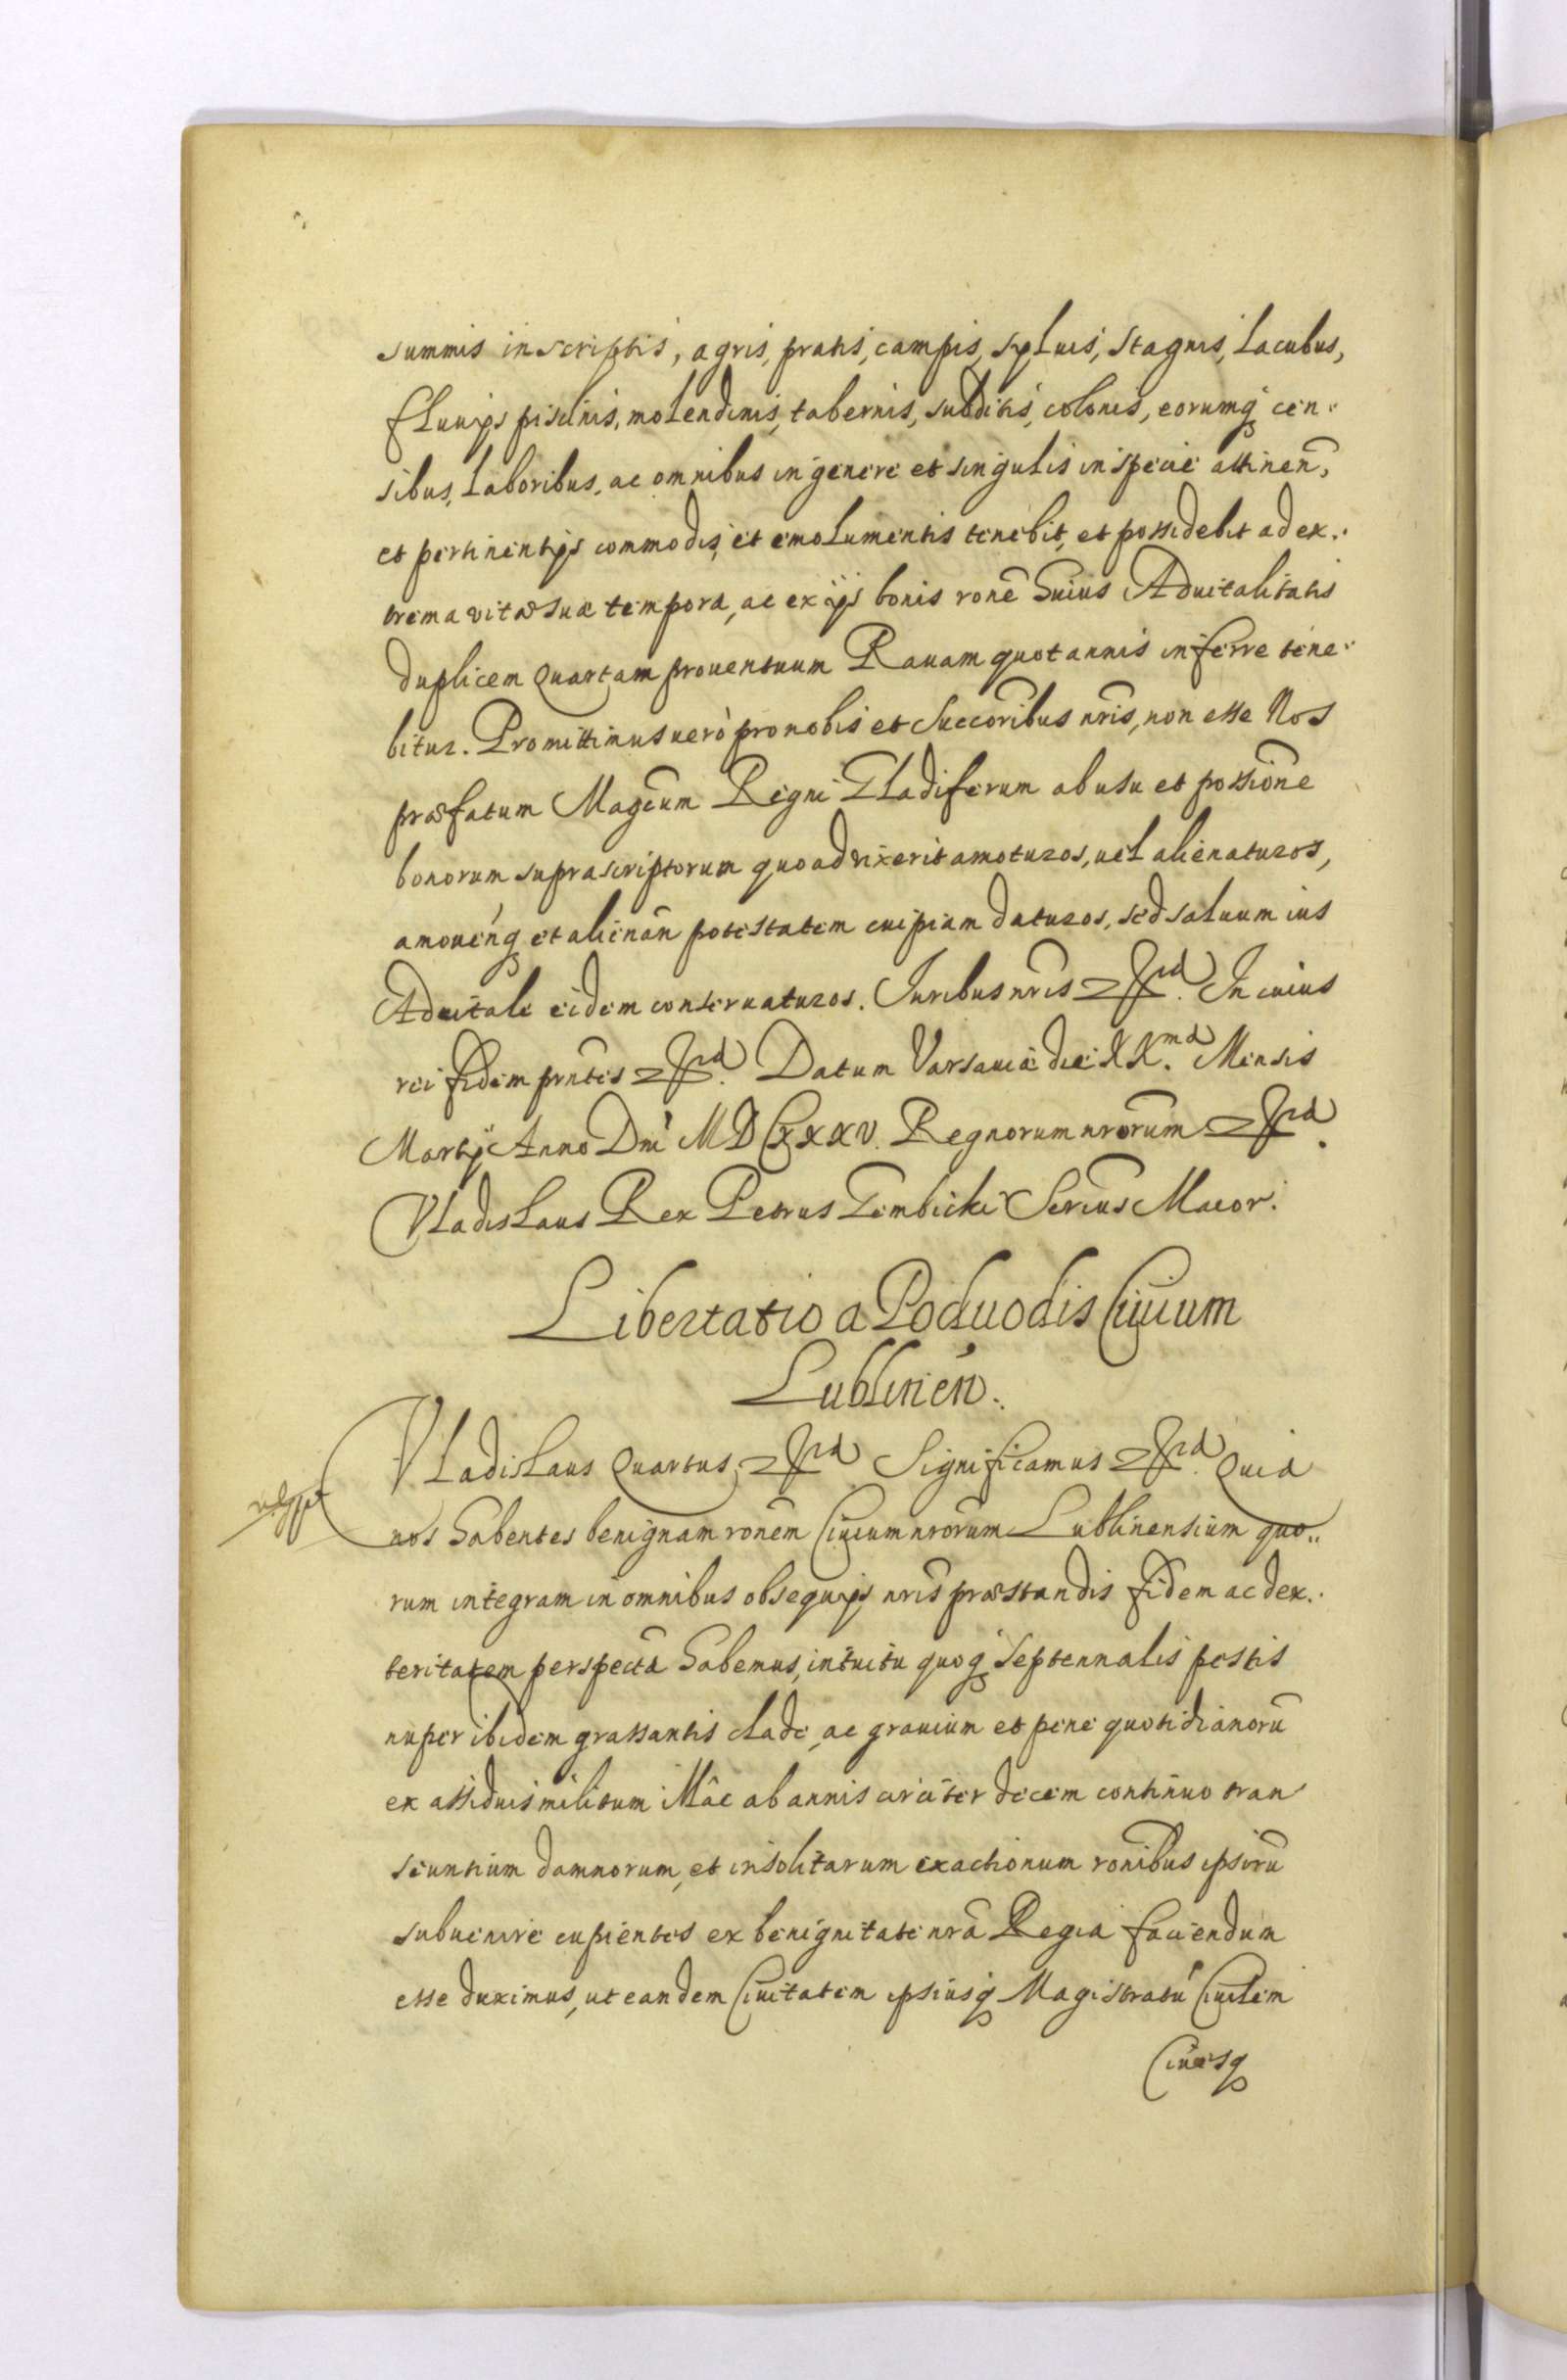 summis inscriptis, agris, pratis, campis, sylvis, stagnis, Lacubus,
fluvijs piscinis, molendinis, tabernis, subditis, colonis, eorumq cen-
sibus, Laboribus, ac omnibus in genere et singulis in specie attinen,
et pertinentijs commodis, et emolumentis tenebit, et possidebit ad ex-
trema vitæ suæ tempora, ac ex ijs bonis rone huius Aduitalitatis
duplicem quartam prouentuum Rauam quotannis inferre tene-
bitur. Promittimus uerò pro nobis et Succoribus nris, non esse Nos
præfatum Magcum Regni Gladiferum ab usu et possione
bonorum suprascriptorum quoad vixerit amoturos, uel alienaturos,
amouenq et alienan potestatem cuipiam daturos, sed saluum ius
Aduitale eidem conseruaturos. Iuribus nris etc. In cuius
rei fidem pntes etc. Datum Varsauiæ die XX.ma Mensis
Martij Anno Dni MDCXXXV. Regnorum nrorum etc.
Vladislaus Rex Petrus Gembicki Secrius Maior.
Libertatio a Poduodis Ciuium
Lublinen.
Vladislaus Quartus etc. Significamus etc. Quia
nos habentes benignam ronem Ciuium nrorum Lublinensium quo-
rum integram in omnibus obsequijs nris præstandis fidem ac dex-
teritatem perspecta habemus, intuitu quoq septennalis pestis
nuper ibidem grassantis clade, ac grauium et pene quotidianoru
ex assiduis militum illac ab annis circiter decem continuo tran
seuntium damnorum, et insolitarum exactionum ronibus ipsoru
subuenire cupientes ex benignitate nra Regia faciendum
esse duximus, ut eandem Ciuitatem ipsiusq Magistratu Ciuilem
Ciuesq